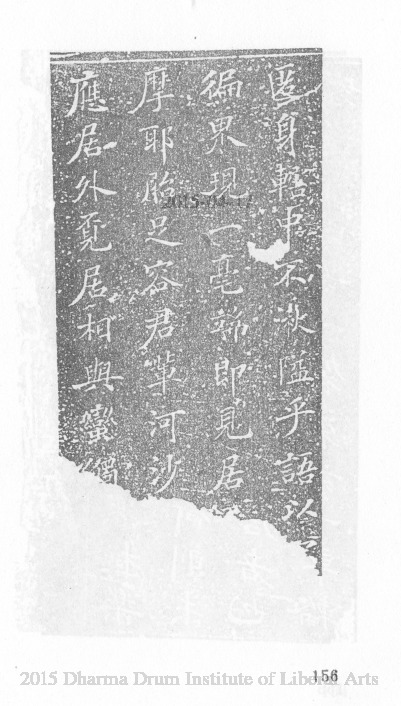 匿身轄中不湫隘乎語以
徧界現一毫端即見居
摩耶胎足容君輩河沙
應居外覔居相與蠻觸
156
2015 Dharma Drum Institute of Liberal Arts